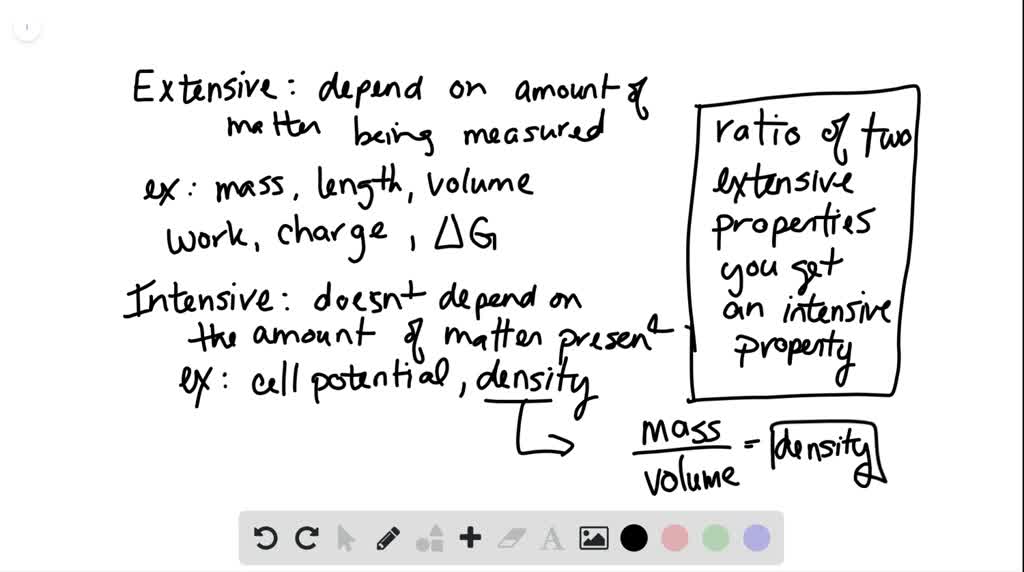 Extensive: depend on amount of
matter being measured
ex: mass, length, volume
work, charge, ΔG
Intensive: doesnt depend on
the amount of matter present
ex: cell potential, density
ratio of two
extensive
properties
you get
an intensive
property
mass
volume
= density
A